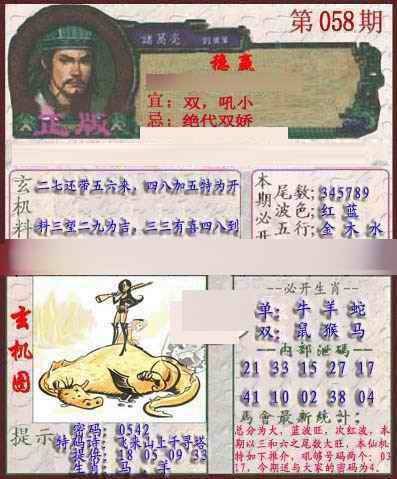 第058期
諸葛亮
稳赢
宜:双,吼小
忌:绝代双娇
正版
玄机料
二七还带五六来,四八加五特为开
料三望二九为吉,三三有喜四八到
本期必开
尾数:345789
波色:红 蓝
五行:金 木 水
玄机图
必开生肖
单:牛 羊 蛇
双:鼠 猴 马
内部泄码
21 33 15 27 17
41 10 02 38 04
馬會最新統計:
总分为大,蓝波旺,次红波,本
期以三和六之尾数大旺,本仙机
特如下推介,吼够号码两个:03
17,今期送与大家的密码为4.
提示
密码: 0542
特码诗: 飞来山上千寻塔
提侍: 18 05 09 33
生肖: 马.羊